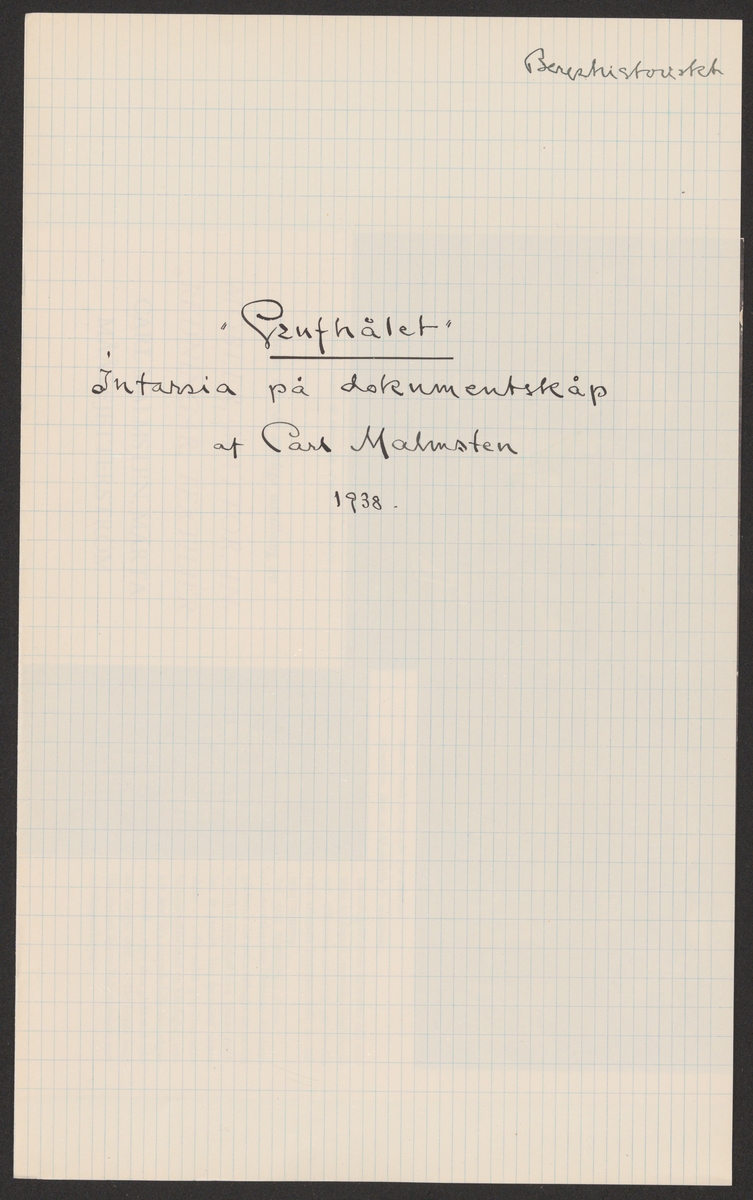 Bergshistoriskt
"Grufhålet"
Intarsia på dokumentskåp
af Carl Malmsten
1938.